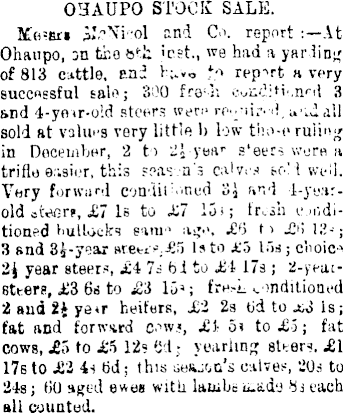 OHAUPO STOCK SALE.
Messrs McNicol and Co. report :—At
Ohaupo, on the 8th inst., we had a yarding
of 813 cattle, and have to report a very
successful sale; 300 fresh conditioned 3
and 4-year-old steers were required, and all
sold at values very little b low those ruling
in December, 2 to 2½-year steers were a
trifle easier, this season's calves sold well.
Very forward conditioned 3½ and 4-year-
old steers, £7 1s to £7 15s; fresh condi-
tioned bullocks same age, £6 to £6 12s;
3 and 3½-year steers, £5 1s to £5 15s; choice
2½ year steers, £4 7s 6d to £4 17s; 2-year-
steers, £3 6s to £3 15s; fresh conditioned
2 and 2½ year heifers, £2 2s 6d to £3 1s;
fat and forward cows, £4 5s to £5; fat
cows, £5 to £5 12s 6d; yearling steers, £1
17s to £2 4s 6d; this season's calves, 20s to
24s; 60 aged ewes with lambs made 8s each
all counted.